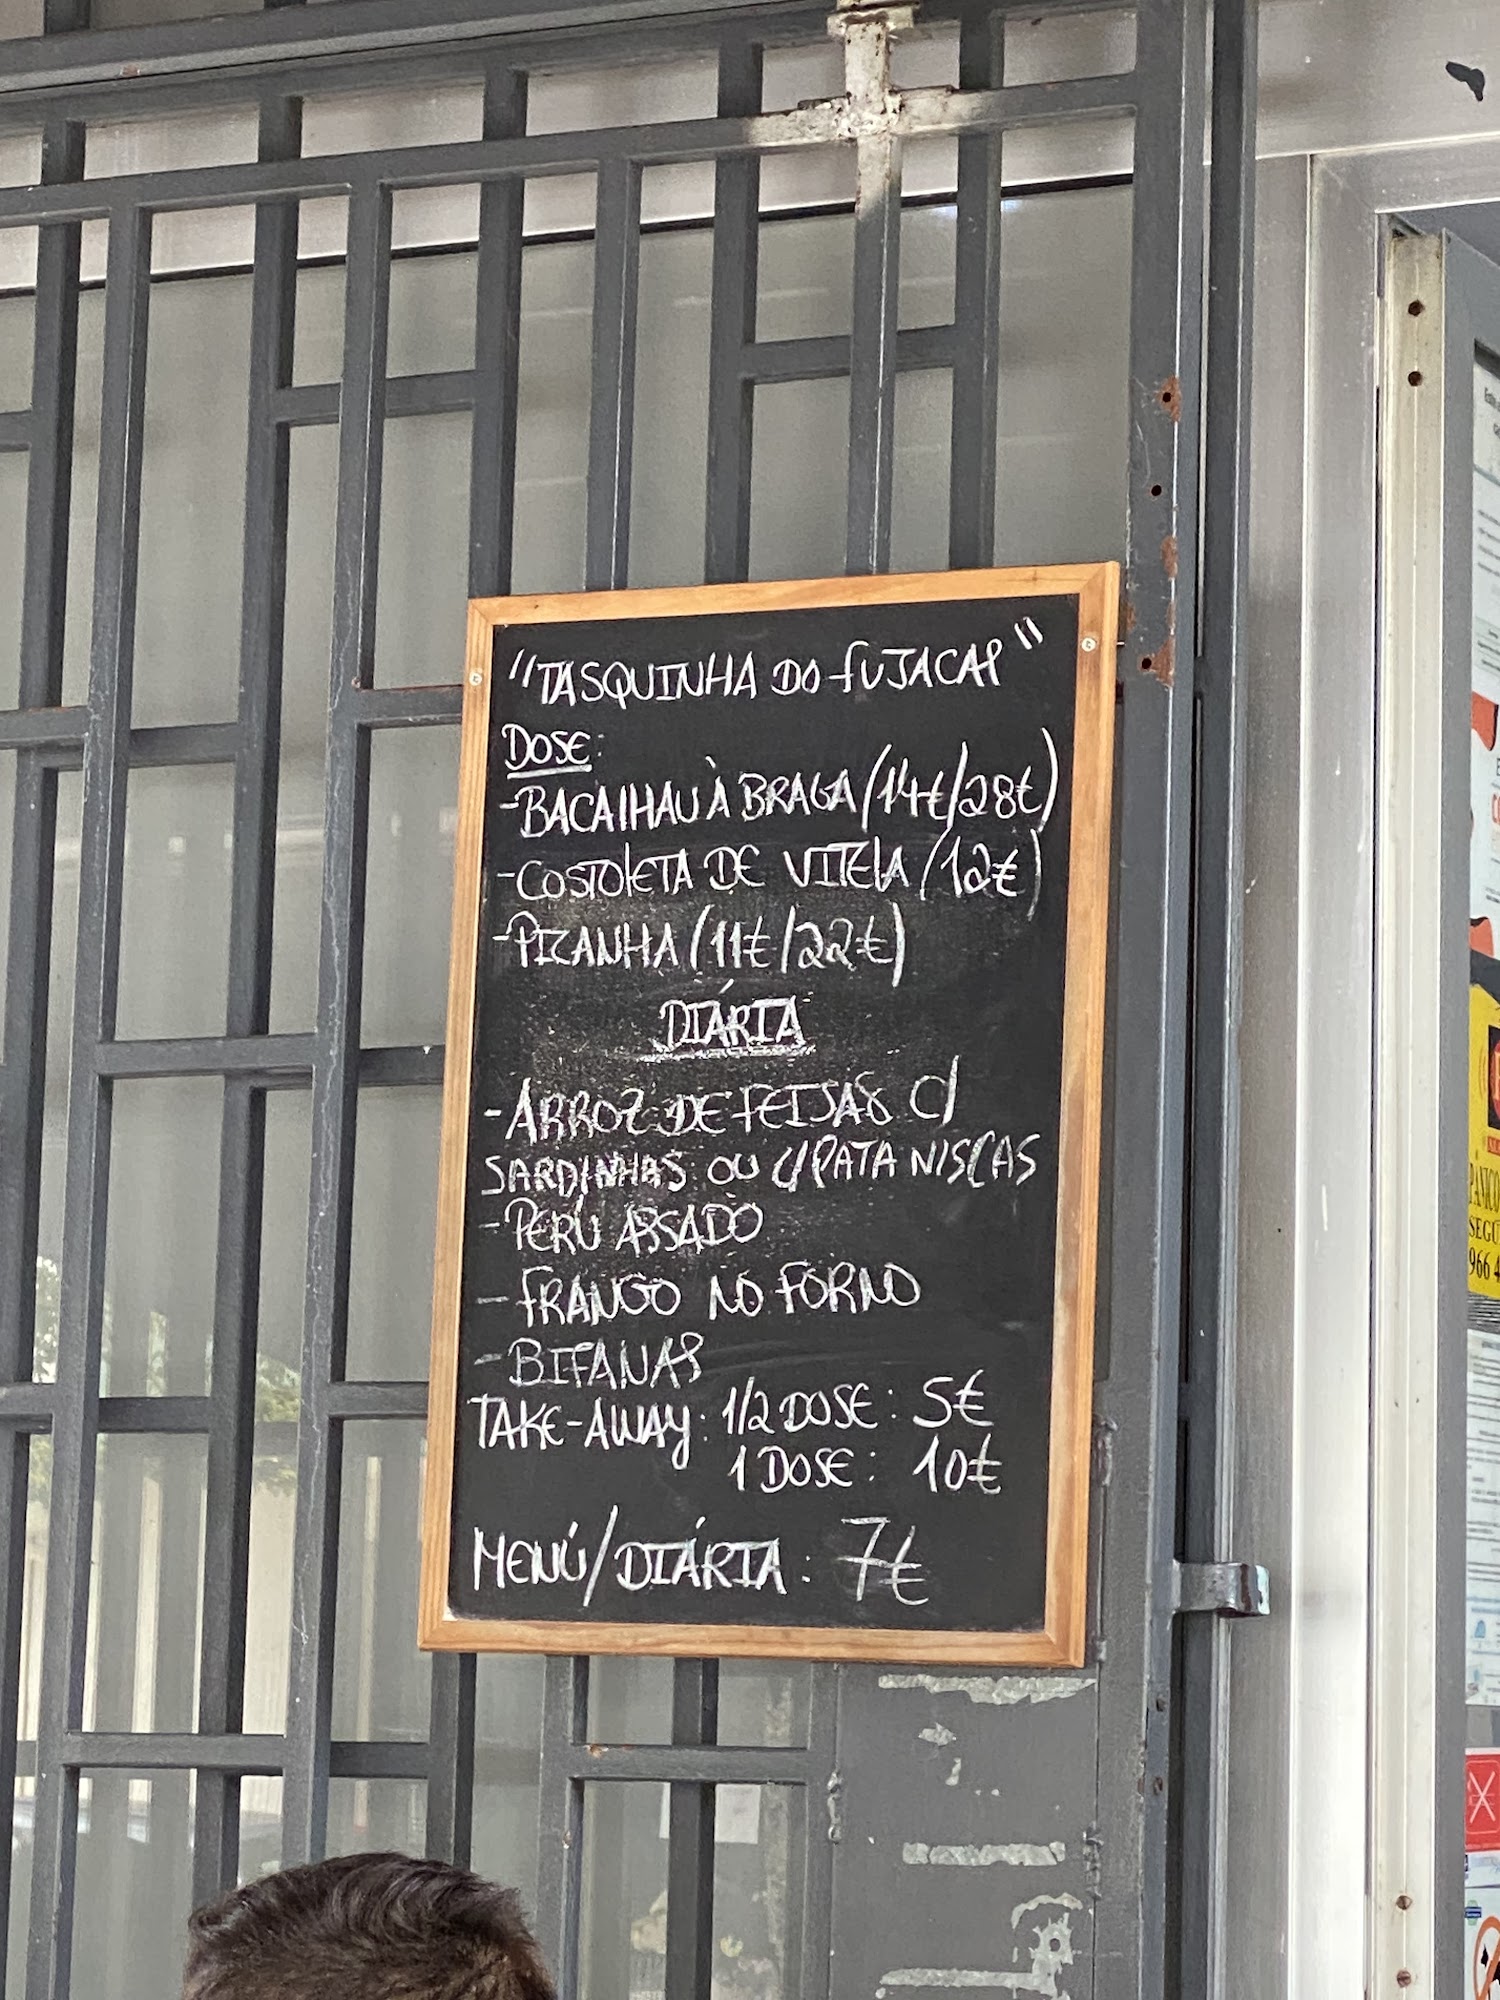 "TASQUINHA DO FUJACAP"
DOSE:
-BACALHAU À BRAGA (14€/28€)
-COSTOLETA DE VITELA (12€)
-PICANHA (11€/22€)
DIÁRIA
-ARROZ DE FEIJÃO C/
SARDINHAS OU C/PATANISCAS
-PERÚ ASSADO
-FRANGO NO FORNO
-BIFANAS
TAKE-AWAY: 1/2 DOSE: 5€
1 DOSE: 10€
MENÚ/DIÁRIA: 7€
966 4